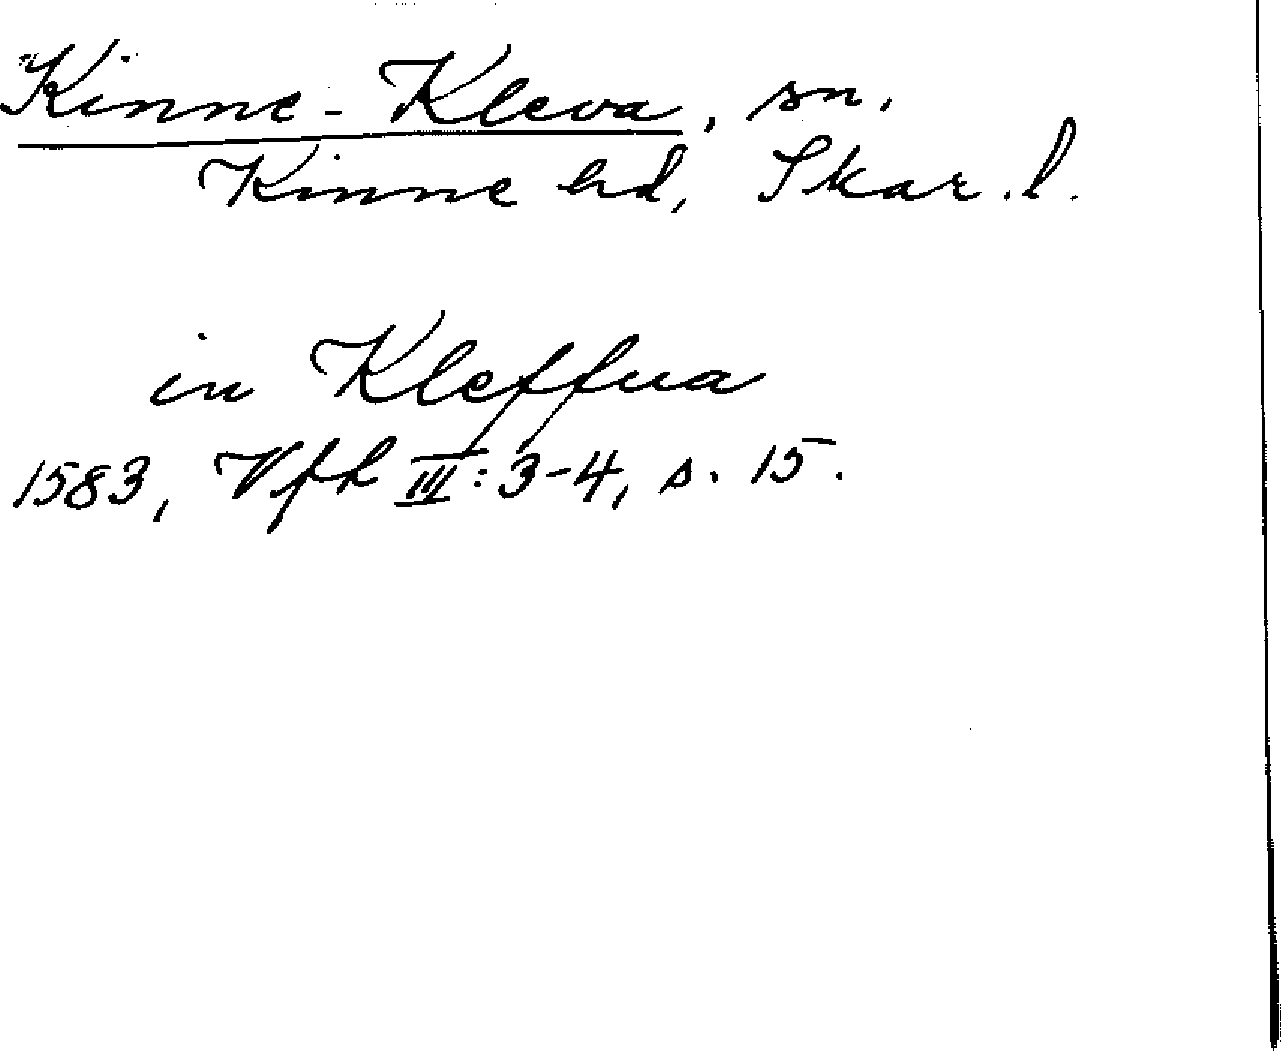 Kinne-Kleva, sn.
Kinne hd, Skar.l.
in Kleffua
1583, Vfh III:3-4, s. 15.